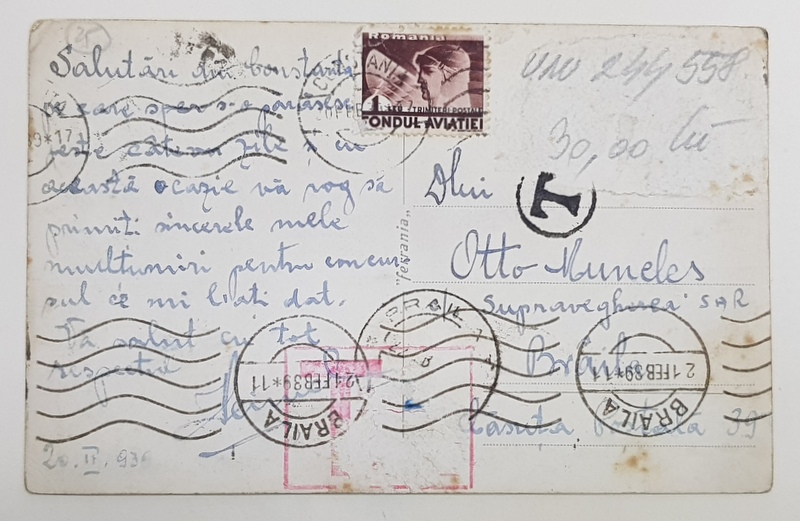 25
Salutări din Constanța
pe care sper s-o părăsesc
peste câteva zile și cu
această ocazie vă rog să
primiți sincerele mele
multumiri pentru concur
sul ce mi l-ati dat.
Vă salut cu tot
respectul
20.II.939
Romania
1 LEU TRIMITERI POSTALE
FONDUL AVIAȚIEI
UNU 244558
30,00 lei
T
"fexrania"
Dlui
Otto Muneles
Supravegherea SAR
Brăila
Căsuța Poștală 39
BRAILA
21FEB39*11
BRAILA
21FEB39*11
BRAILA
9*17